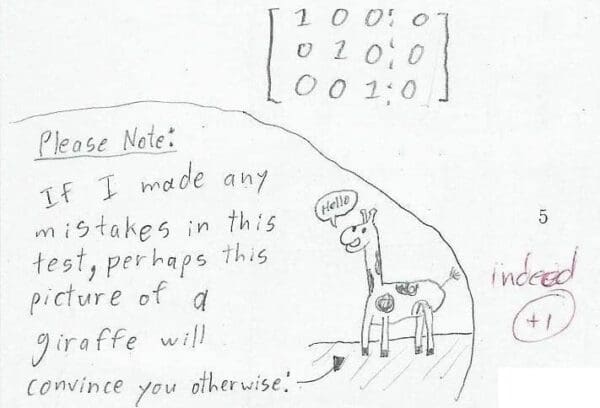 1 0 0 ¦ 0
0 1 0 ¦ 0
0 0 1 ¦ 0
Please Note:
If I made any
mistakes in this
test, perhaps this
picture of a
giraffe will
convince you otherwise:
Hello
5
indeed
+1